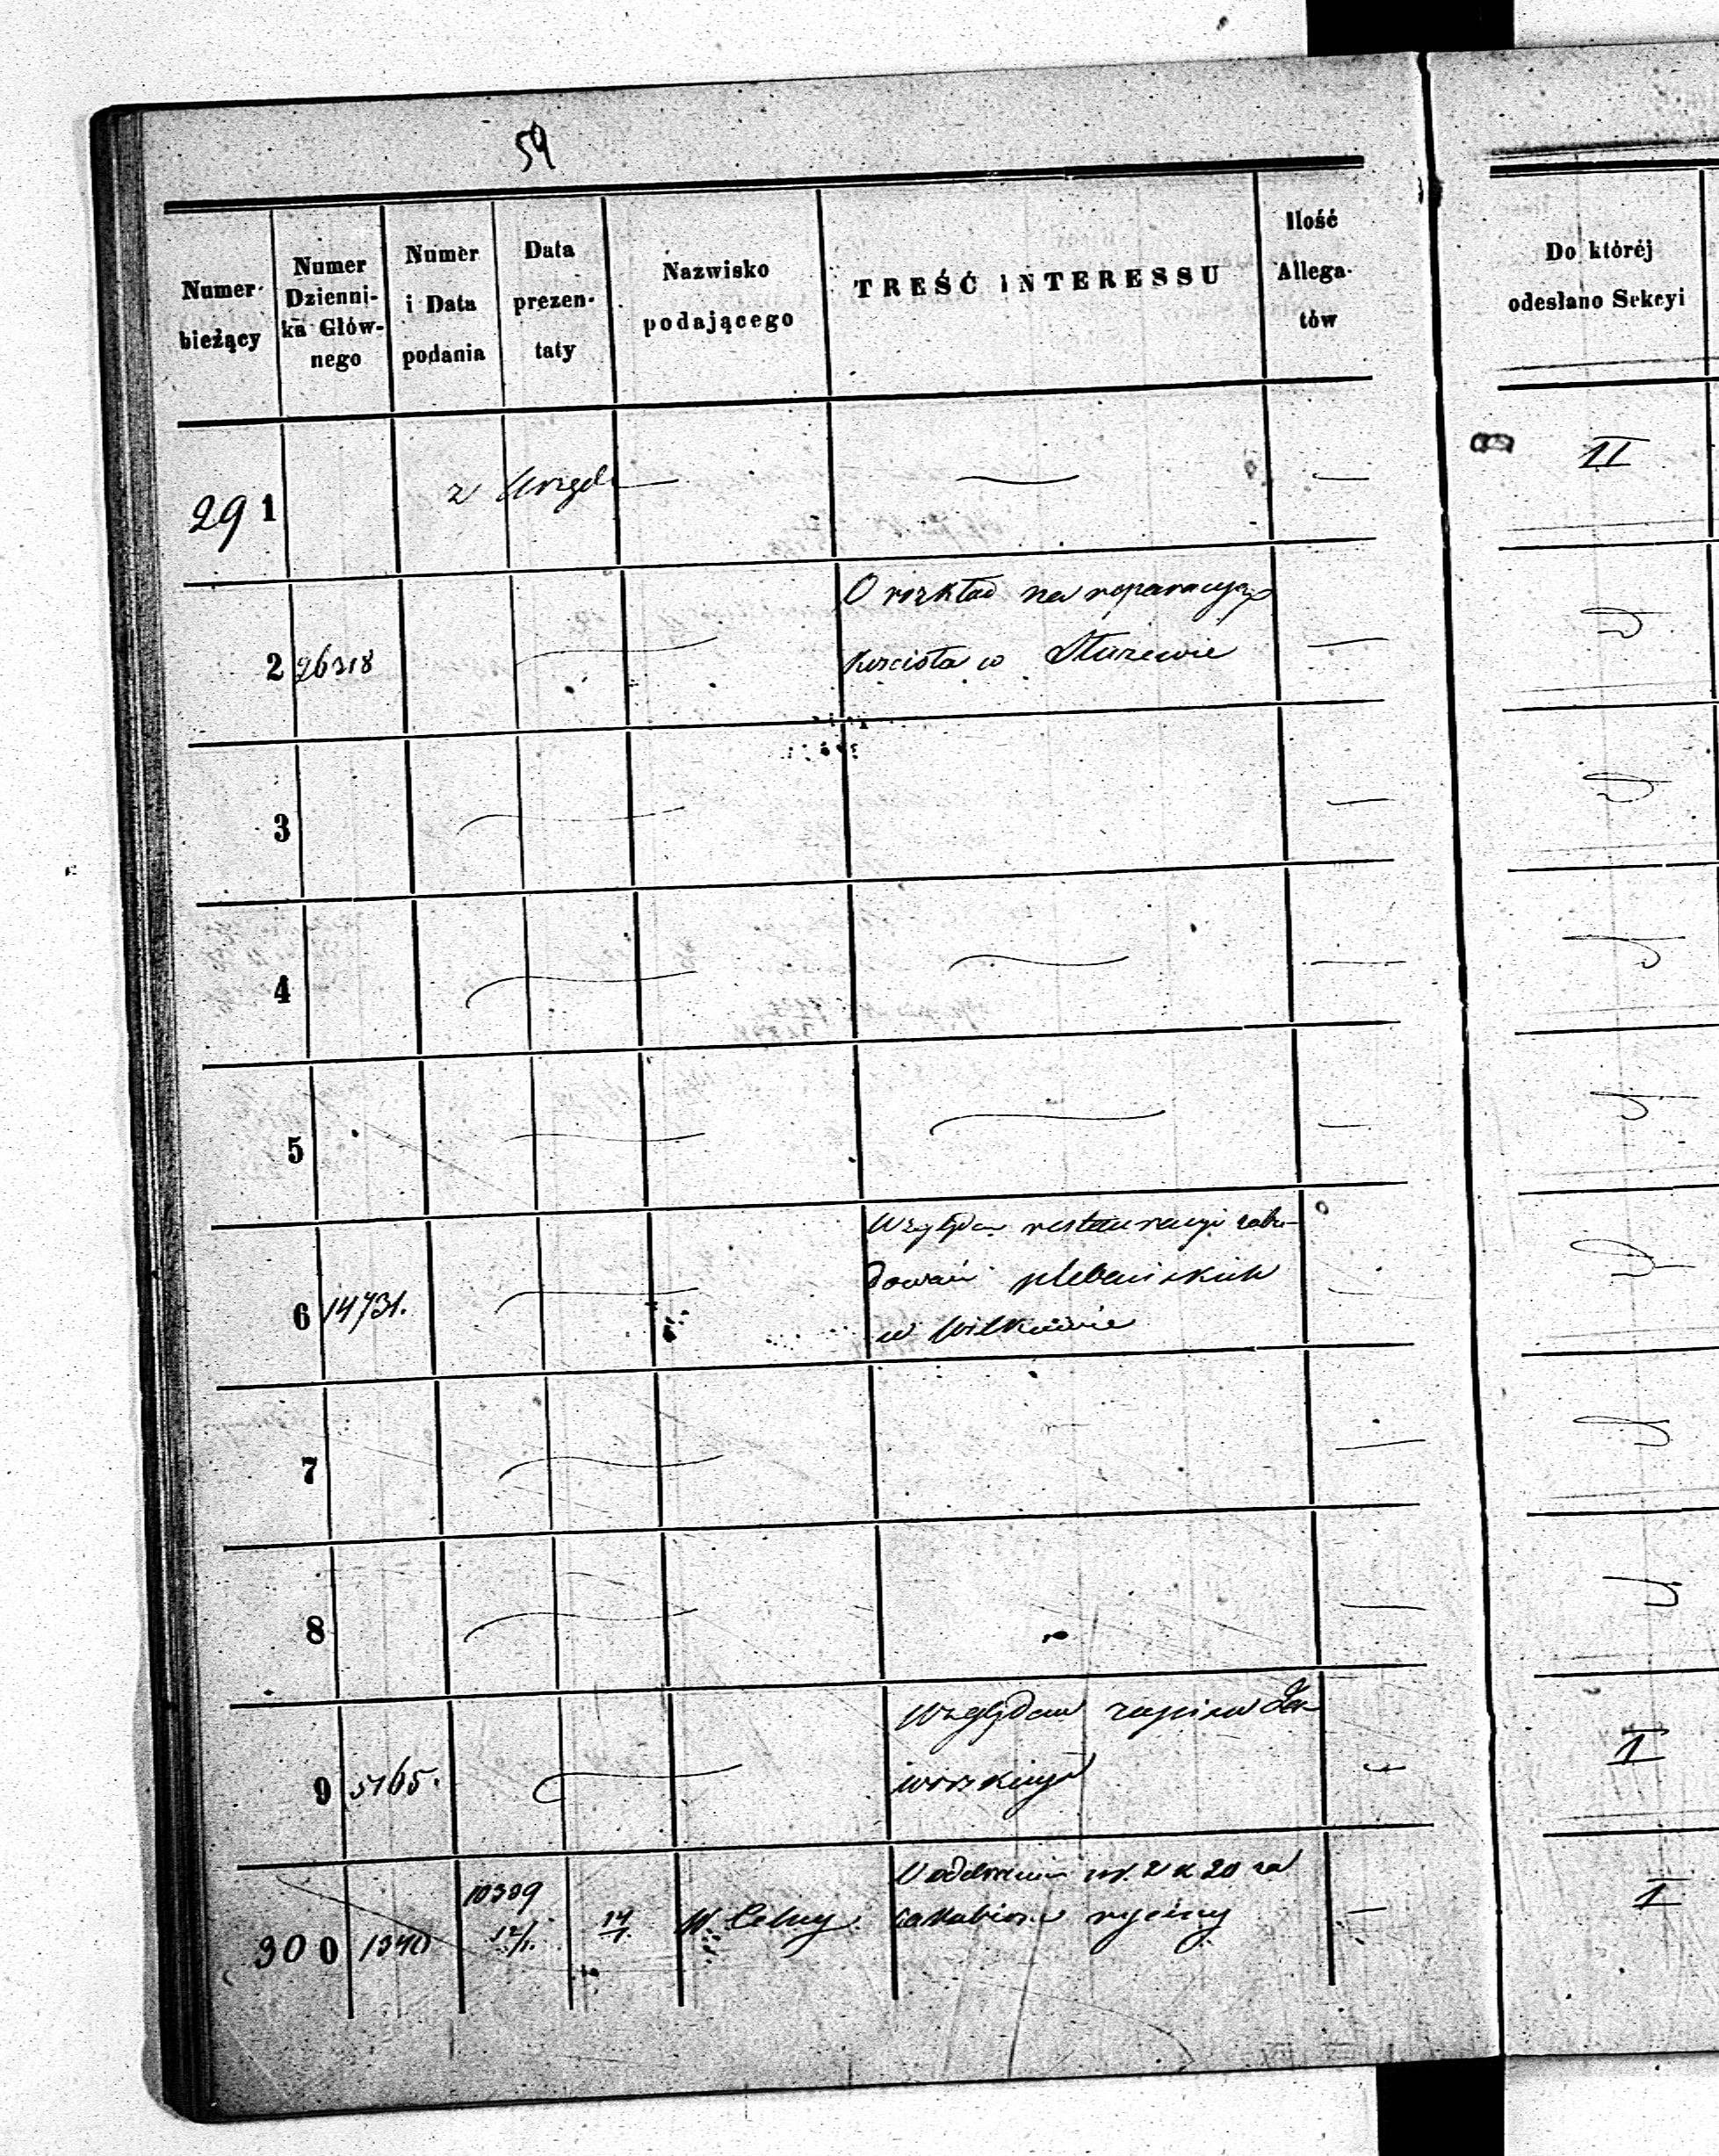 54
Numer bieżący
Numer Dzienni- ka Głów- nego
Numer i Data podania
Data prezen- taty
Nazwisko podającego
TREŚĆ INTERESSU
Ilość Allega- tów
Do któréj odesłano Sekcyi
291 z Urzędu II
2 26318 O rozkład na reparacyę
kościoła w
3
4
5
6 14731. Względem restauracyi zabu-
dowań plebańskich
w Wilkowie
7
8
9 5165. Względem zapisu I
300 1340 10309 12/1. 14/1. W. Celny.
rs. 2 k 20 za
ryciny I